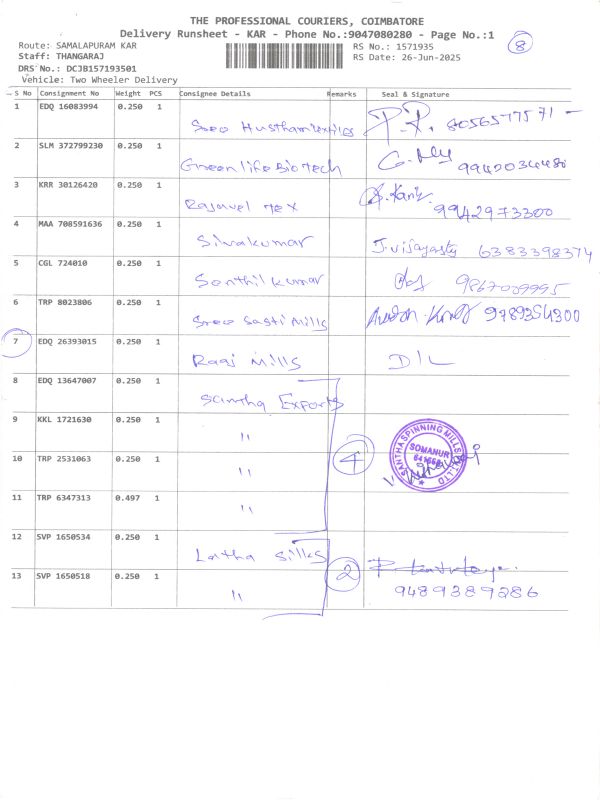 THE PROFESSIONAL COURIERS, COIMBATORE
Delivery Runsheet - KAR - Phone No.:9047080280 - Page No.:1
8
Route: SAMALAPURAM KAR
RS No.: 1571935
Staff: THANGARAJ
RS Date: 26-Jun-2025
DRS No.: DCJB157193501
Vehicle: Two Wheeler Delivery
S No Consignment No Weight PCS Consignee Details Remarks Seal & Signature
1 EDQ 16083994 0.250 1 Sree Husthamtextiles P.P. 8056577571
2 SLM 372799230 0.250 1 Greenlife Bio tech 9942034480
3 KRR 30126420 0.250 1 Rajavel tex 9942973300
4 MAA 708591636 0.250 1 Sivakumar 6383398374
5 CGL 724010 0.250 1 Senthil kumar 9867009995
6 TRP 8023806 0.250 1 Sree Sasti Mills 9789354300
7 EDQ 26393015 0.250 1 Raaj Mills D/L
8 EDQ 13647007 0.250 1 Santha Exports
9 KKL 1721630 0.250 1 "
4
SANTHA SPINNING MILLS PVT LTD
SOMANUR
641668
10 TRP 2531063 0.250 1 "
11 TRP 6347313 0.497 1 "
12 SVP 1650534 0.250 1 Latha Silks
2
13 SVP 1650518 0.250 1 " 9489389286